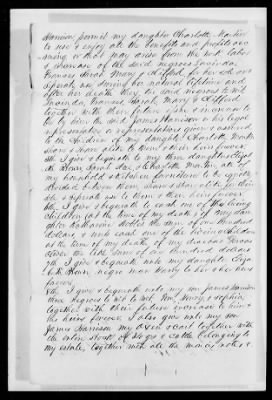 Harrison permit my daughter Charlotte Martin
to use & enjoy all the benefits and profits ari
sing or that may arise from the labor
& increase of the said negroes Lucinda,
Frances Sarah Mary & Clifford, for her sole and
separate use during her natural lifetime and
after her death they, the said negroes to wit
Lucinda, Frances, Sarah, Mary & Clifford
together with their future increase
to be by him the said James Harrison or his legal
representative or representatives given & assured
to the children of my daughter Charlotte Martin
share & share alike to them & their heirs forever.
5th I give & bequeath to my three daughters Eliza
beth Charlotte Martin all of
my household & kitchen furniture to be equally
divided between them, share & share alike, for their
sole & separate use to them & their heirs forever.
6th I give & bequeath to each one of the living
children (at the time of my death) of my daugh
ter Katharine the sum of one hundred
dollars & unto each one of the living children
at the time of my death of my deceased
the like sum of one hundred dollars
7th I give & bequeath unto my daughter Eliza
beth negro man Harry to her & her heirs
forever.
8th I give & bequeath unto my son James Harrison
three negroes to wit Mary, & Sophia
together with their future increase to him &
his heirs forever. I also give unto my son
James Harrison my oxen & cart together with
the entire stock of Hogs & cattle belonging to
my estate, together with all the monies, notes &